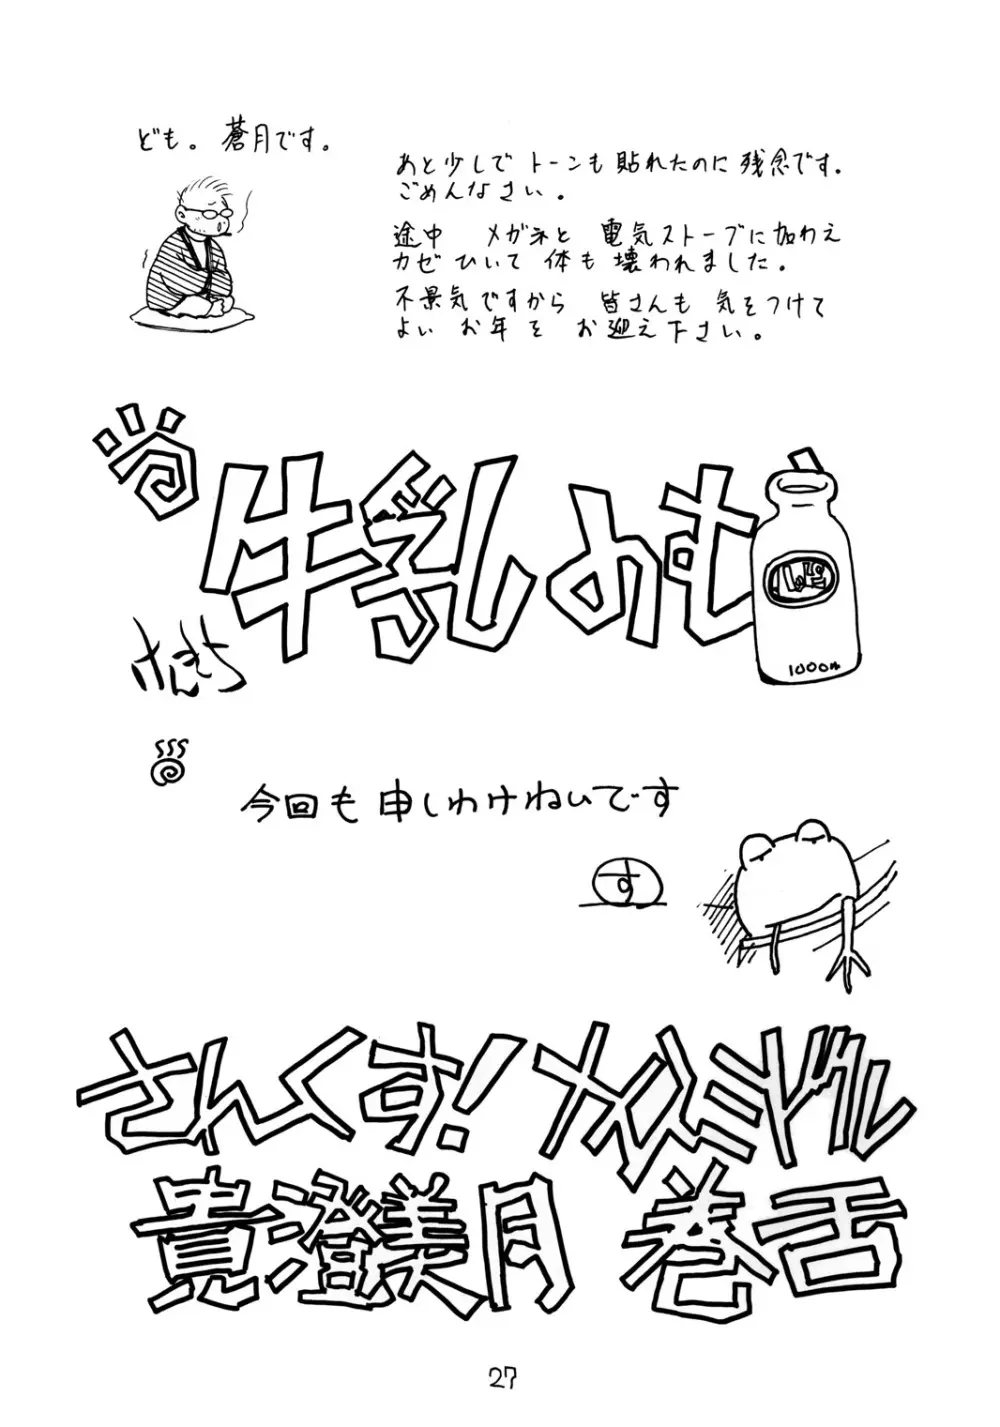 ども。蒼月です。
あと少しで トーンも 貼れたのに 残念です。
ごめんなさい。
途中 メガネと 電気ストーブに加わえ
カゼひいて 体も 壊われました。
不景気ですから 皆さんも 気をつけて
よい お年を お迎え下さい。
牛乳のむ
1000ml
けんきち
今回も 申しわけねいです
す
さんくす!
貴澄美月 巻舌
27